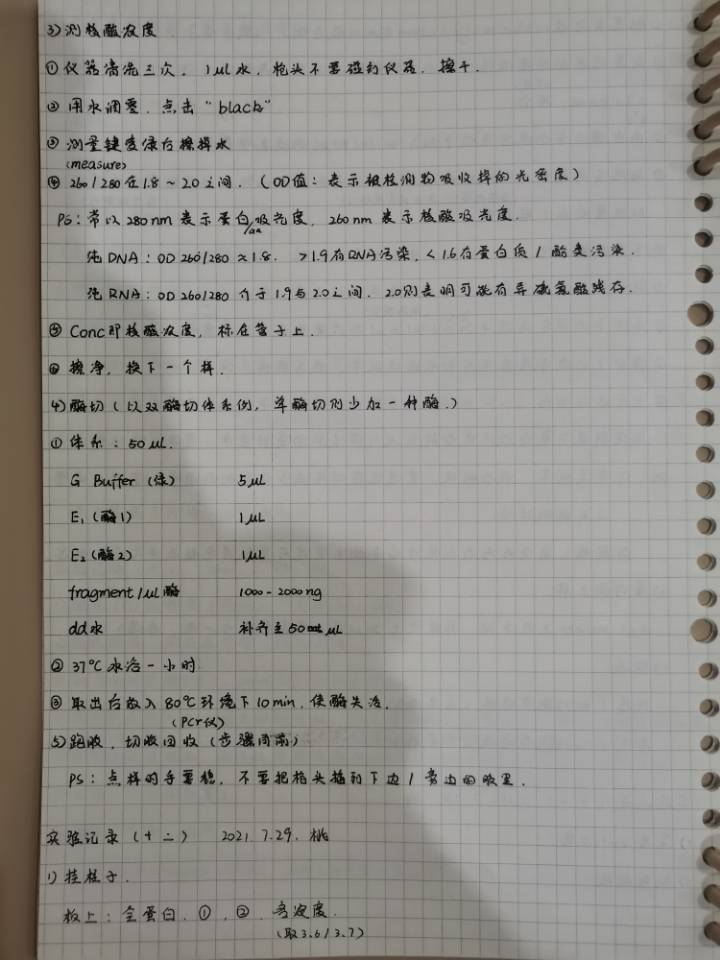 3) 测核酸浓度.
① 仪器清洗三次, 1μL水, 枪头不要碰到仪器, 擦干.
② 用水调零, 点击“black”
③ 测量键变绿后擦掉水
(measure)
④ 260/280在1.8~2.0之间. (OD值: 表示被检测物吸收掉的光密度)
PS: 常以280nm表示蛋白/aa吸光度, 260nm表示核酸吸光度.
纯DNA: OD 260/280 ≈ 1.8. >1.9有RNA污染, <1.6有蛋白质/酚类污染.
纯RNA: OD 260/280 介于1.9与2.0之间. 2.0则表明可能有异硫氰酸残存.
⑤ Conc即核酸浓度, 标在管子上.
⑥ 擦净, 换下一个样.
4) 酶切 (以双酶切体系例, 单酶切则少加一种酶.)
① 体系: 50μL.
G Buffer (绿) 5μL
E₁ (酶1) 1μL
E₂ (酶2) 1μL
fragment/1μL酶 1000-2000ng
dd水 补齐至50μL
② 37℃水浴一小时
③ 取出后放入80℃环境下10min, 使酶失活.
(PCr仪)
5) 跑胶, 切胶回收 (步骤同前)
PS: 点样时手要稳, 不要把枪头插到下边/旁边的胶里.
实验记录 (十二) 2021. 7.29. 桃
1) 挂柱子.
板上: 全蛋白, ①, ②, 多浓度.
(取3.6/3.7)